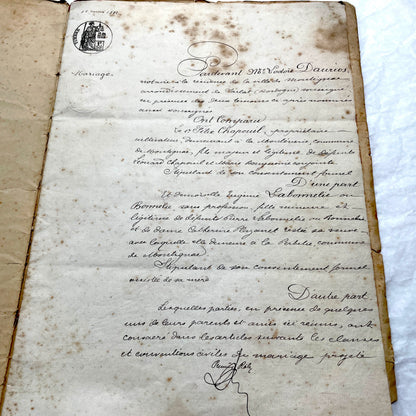 Mariage
Pardevant Me Ludovic Daurios
notaire à la résidence de la ville de Montignac
arrondissement de Sarlat, (Dordogne) soussigné
en présence des deux témoins ci après nommés
aussi soussignés
Ont Comparu
Le Sr Félix Chapoul, propriétaire
cultivateur, demeurant à commune
de Montignac, fils majeur et légitime de défunts
Léonard Chapoul et Marie conjoints
Stipulant de son consentement formel
D'une part
Et demoiselle Eugénie Labonnelie ou
Bonnelie sans profession, fille mineure et
légitime de défunt Pierre Labonnelie ou Bonnelie
et de dame Catherine sa veuve
avec laquelle elle demeure à la commune
de Montignac
Stipulant de son consentement formel
assistée de sa mère
D'autre part
Lesquelles parties, en présence de quelques
uns de leurs parents et amis ici réunis, ont
consacré dans les articles suivants les clauses
et conventions civiles du mariage projeté